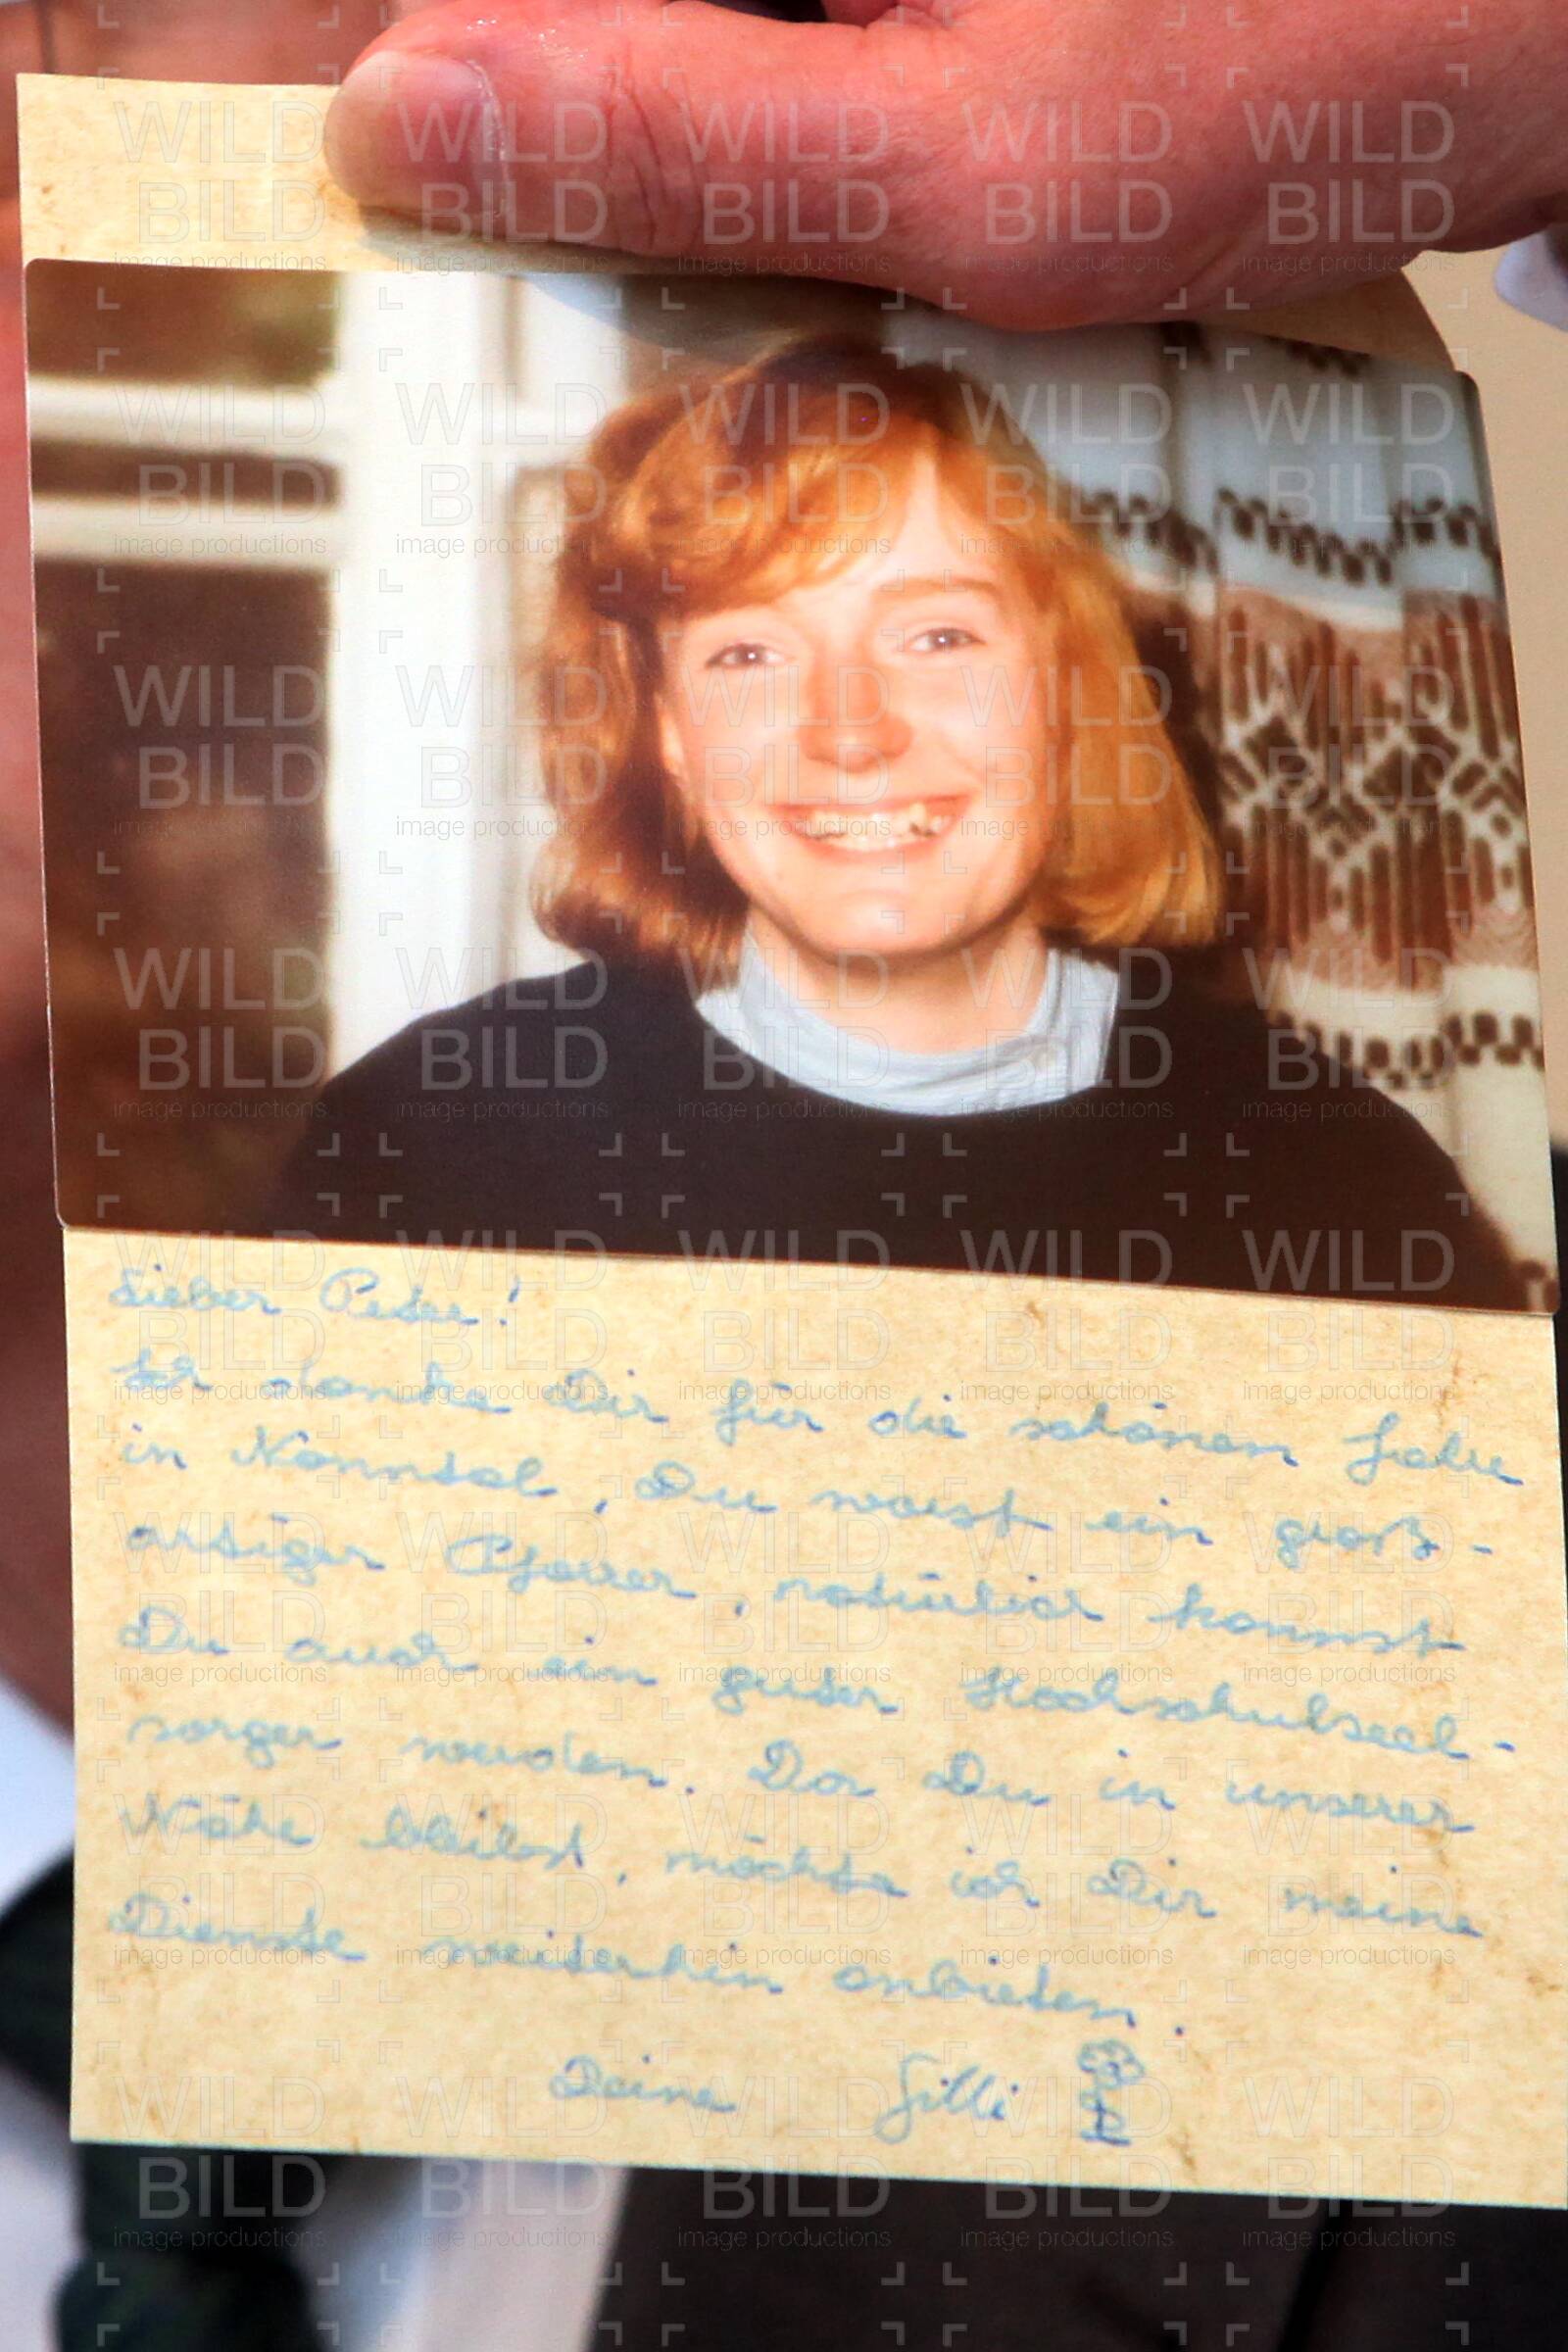 Lieber Peter!
Ich danke Dir für die schönen Jahre
in Nonntal, Du warst ein groß-
artiger Pfarrer, natürlich kannst
Du auch ein guter Hochschulseel-
sorger werden. Da Du in unserer
Nähe bleibst, möchte ich Dir meine
Dienste weiterhin anbieten.
Deine Gilli
WILD BILD
image productions